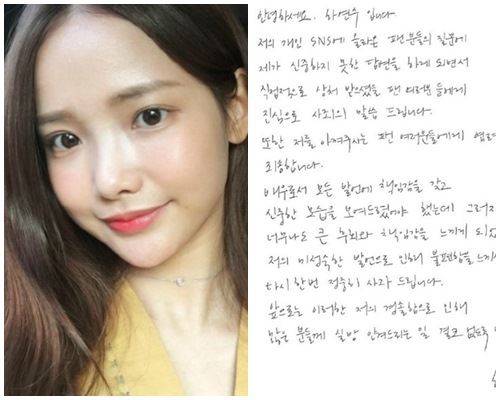 안녕하세요. 하연수 입니다
저의 개인 SNS에 올라온 팬분들의 질문에
제가 신중하지 못한 답변을 하게 되면서
직접적으로 상처 받으셨을 팬 여러분들에게
진심으로 사죄의 말씀 드립니다.
또한 저를 아껴주시는 팬 여러분들에게
죄송합니다.
배우로서 모든 발언에 책임감을 갖고
신중한 모습을 보여드렸어야 했는데 그러지
너무나도 큰 후회와 책임감을 느끼게 되었
저의 미성숙한 발언으로 인해 불편함을 느끼
다시 한번 정중히 사과 드립니다.
앞으로는 이러한 저의 경솔함으로 인해
많은 분들께 실망 안겨드리는 일 결코 없도록